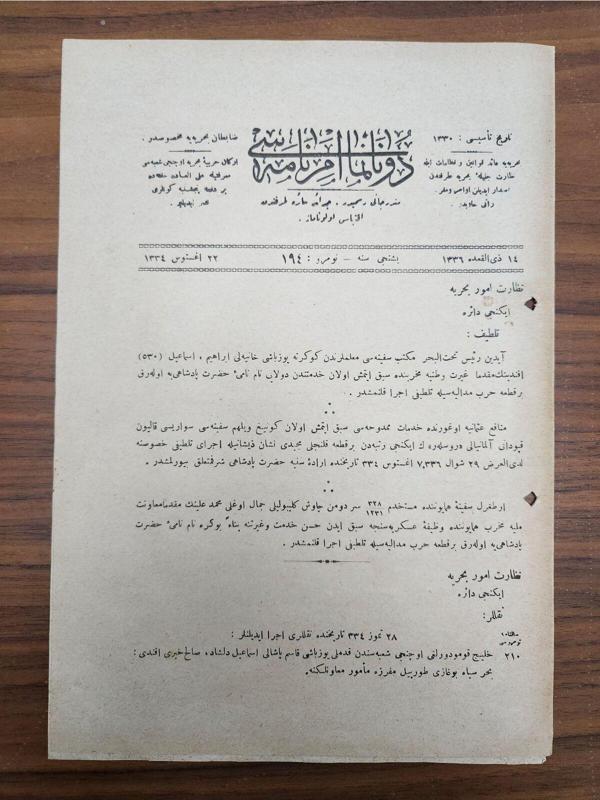 تاریخ تأسیسی : ١٣٣٠
بحریه‌یه عائد قوانین و نظامات ایله
نظارت جلیلهٔ بحریه طرفندن
اصدار ایدیلن اوامر و مقرراتی حاویدر.
دونانما امرنامه‌سی
مندرجاتی رسمیدر . جرائد سائره طرفندن
اقتباس اولونه‌ماز .
ضابطان بحریه‌یه مخصوصدر .
ارکان حربیهٔ بحریه اوچنجی شعبه‌سی
معرفتیله
هر هفته پنجشنبه کونلری
نشر ایدیلیر .
١٤ ذی القعده ١٣٣٦
بشنجی سنه – نومرو : ١٩٤
٢٢ اغستوس ١٣٣٤
نظارت امور بحریه
ایکنجی دائره
تلطیف :
آیدین رئیس تحت‌البحر مکتب سفینه‌سی معلملرندن کوکرته یوزباشی خانیه‌لی ابراهیم . اسماعیل (٥٣٠)
افندینك مقدما غیرت وطنیه مخربنده سبق ایتمش اولان خدمتندن دولایی نام نامیٔ حضرت پادشاهی‌یه اوله‌رق
برقطعه حرب مدالیه‌سیله تلطیفی اجرا قلنمشدر .
منافع عثمانیه اوغورنده خدمات ممدوحه‌سی سبق ایتمش اولان کونیغ ویلهم سفینه‌سی سواریسی قالیون
قپودانی آلمانیالی «روسله‌ر» ك ایکنجی رتبه‌دن برقطعه قلنجلی مجیدی نشان ذیشانیله اجرای تلطیفی خصوصنه
لدی‌العرض ٢٩ شوال ٣٣٦,٧ اغستوس ٣٣٤ تاریخنده ارادهٔ سنیه حضرت پادشاهی شرفتعلق بیورلمشدر .
ارطغرل سفینهٔ همایوننده مستخدم ٣٢٨/١٢٣١ سر دومن چاوش کلیبولیلی جمال اوغلی محمد علینك مقدما معاونت
ملیه مخرب همایوننده وظیفهٔ عسکریه‌سنجه سبق ایدن حسن خدمت وغیرتنه بناءً بوکره نام نامیٔ حضرت
پادشاهی‌یه اوله‌رق برقطعه حرب مدالیه‌سیله تلطیفی اجرا قلنمشدر .
نظارت امور بحریه
ایکنجی دائره
نقللر :
٢٨ تموز ٣٣٤ تاریخنده نقللری اجرا ایدیلنلر :
٢١٠ خلیج قومودورلغی اوچنجی شعبه‌سندن قدملی یوزباشی قاسم پاشالی اسماعیل دلشاد ، صالح خیری افندی :
بحر سیاه بوغازی طورپیل مفرزه مأمور معاونلکنه .